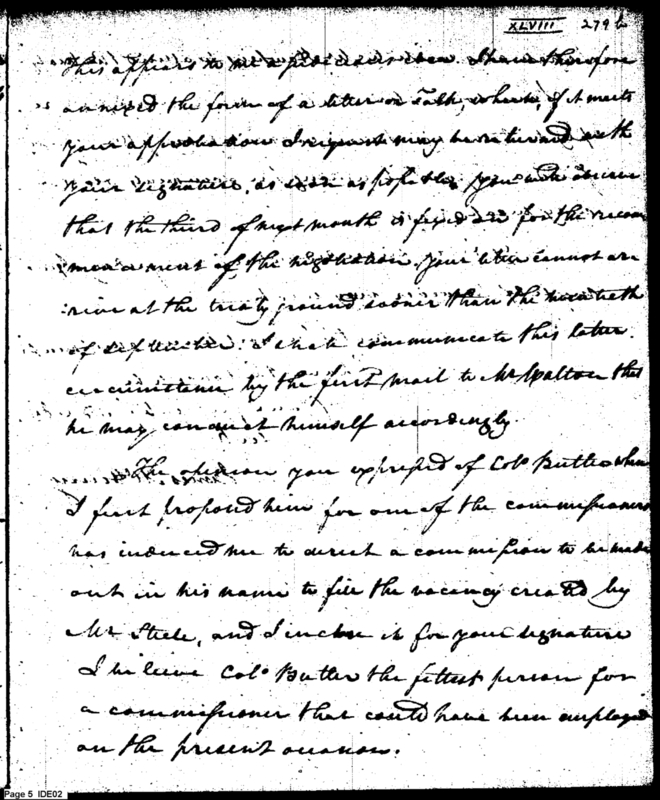 XLVIII 279 b
This appears to me a judicious idea. I have therefore
annexed the form of a letter or Talk, which, if it meets
your approbation I request may be returned with
your signature, as soon as possible. You will observe
that the third of next month is fixed on for the recom
mencement of the negotiation. Your letter cannot ar
rive at the treaty ground sooner than the twentieth
of September. I shall communicate this latter
circumstance by the first mail to Mr Walton that
he may conduct himself accordingly.
The opinion you expressed of Colo Butler when
I first proposed him for one of the commissioners
has induced me to direct a commission to be made
out in his name to fill the vacancy created by
Mr Steele, and I inclose it for your signature
I believe Colo Butler the fittest person for
a commissioner that could have been employed
on the present occasion.
Page 5 IDE02